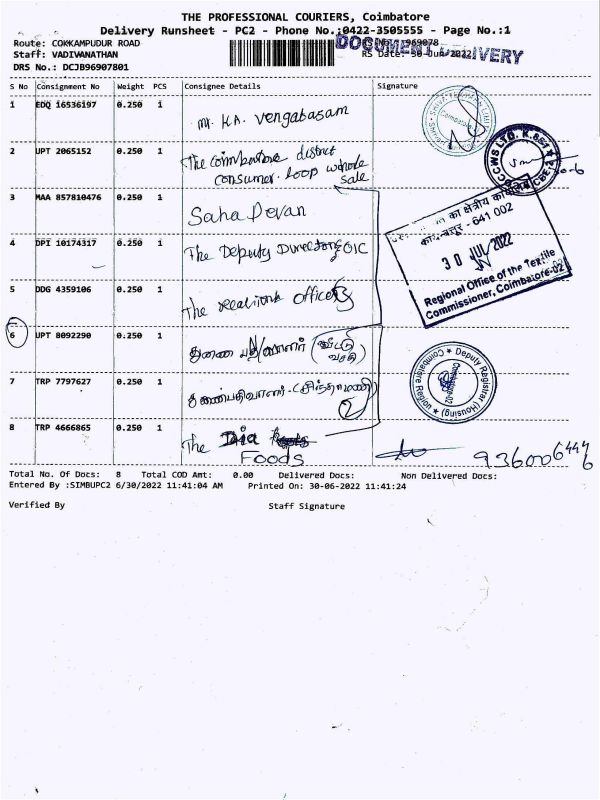 THE PROFESSIONAL COURIERS, Coimbatore
Delivery Runsheet - PC2 - Phone No.:0422-3505555 - Page No.:1
Route: COKKAMPUDUR ROAD
DOCUMENT DELIVERY
969078
Staff: VADIWANATHAN
RS Date: 30-Jun-2022
DRS No.: DCJB96907801
S No Consignment No Weight PCS Consignee Details Signature
1 EDQ 16536197 0.250 1 Mr. K.A. Vengabasam
2 UPT 2065152 0.250 1 The Coimbatore district
consumer. Coop whole
sale
3 MAA 857810476 0.250 1 Saha Devan
4 DPI 10174317 0.250 1 The Deputy Director OIC
5 DDG 4359106 0.250 1 The Officer
6 UPT 8092290 0.250 1 துணை பதிவாளர் (வீட்டு
வசதி)
7 TRP 7797627 0.250 1 துணைபதிவாளர்
2
8 TRP 4666865 0.250 1 The
Foods
CCWS LTD. K.651
CBE-2
का क्षेत्रीय कार्यालय
641 002
30 JUL 2022
Regional Office of the Textile
Commissioner, Coimbatore-02
Deputy Registrar (Housing)
Coimbatore Region
Total No. Of Docs: 8 Total COD Amt: 0.00 Delivered Docs: Non Delivered Docs:
Entered By :SIMBUPC2 6/30/2022 11:41:04 AM Printed On: 30-06-2022 11:41:24
Verified By Staff Signature